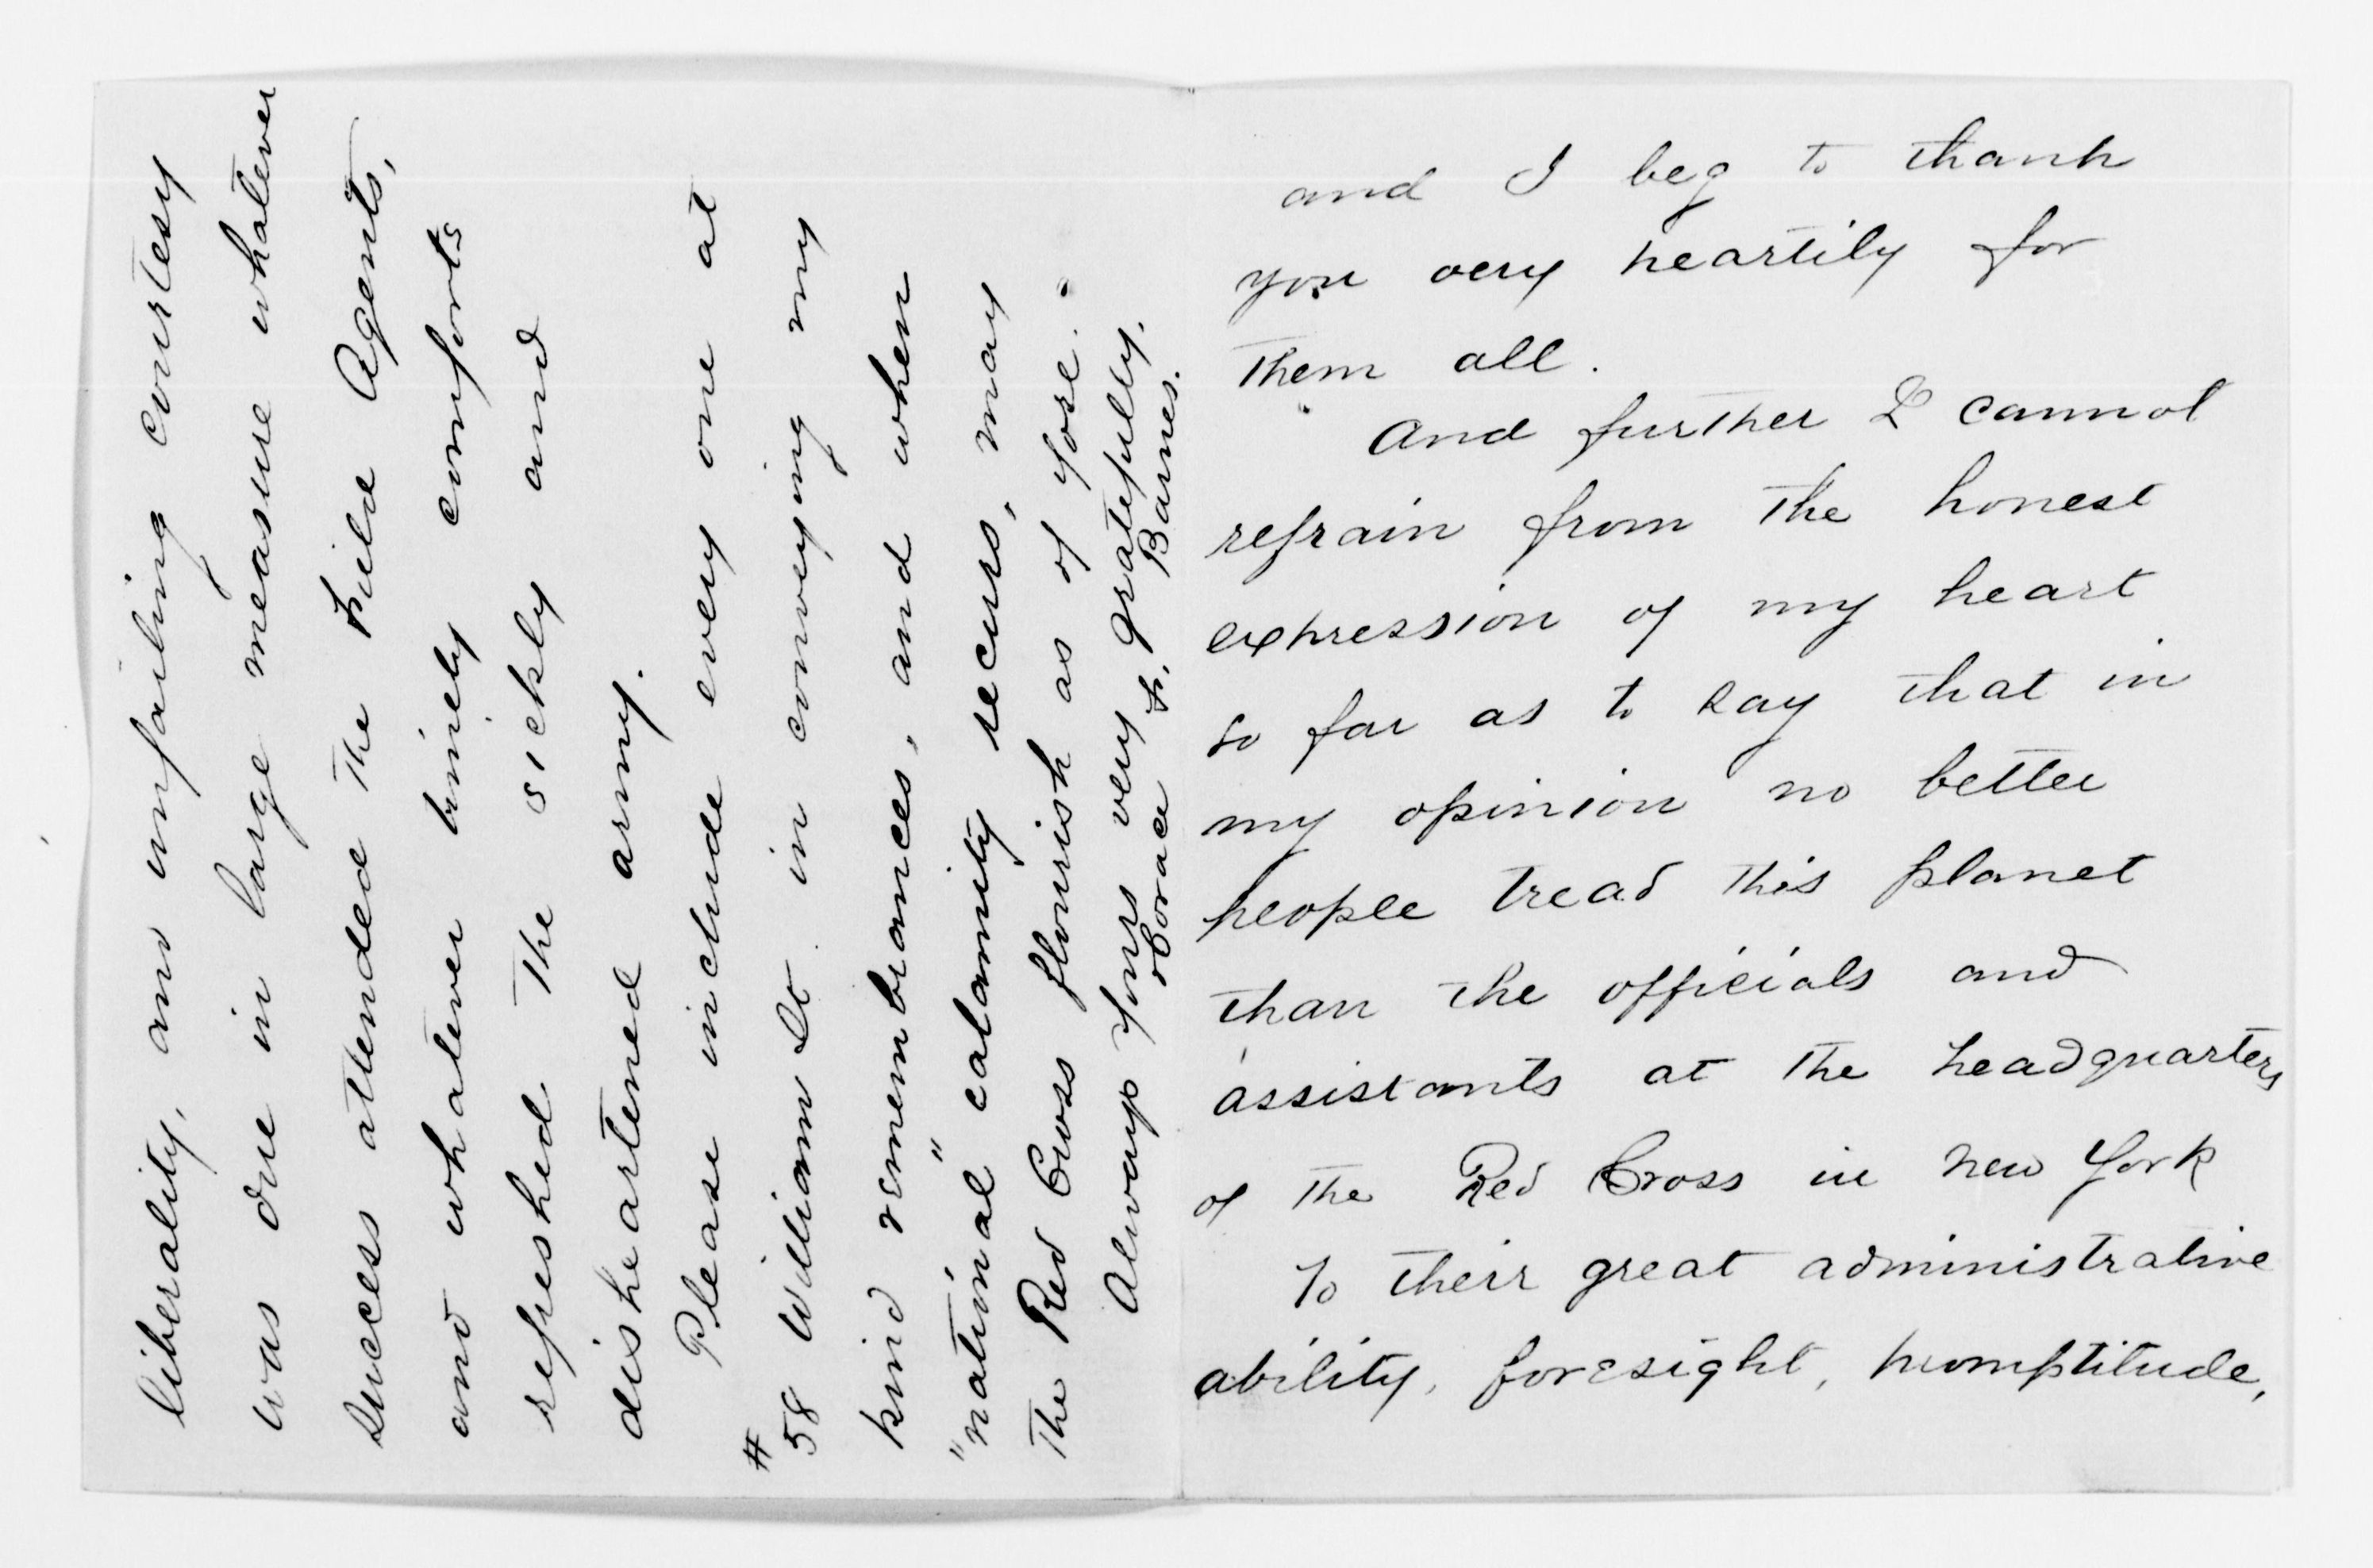 and I beg to thank
you very heartily for
them all.
And further I cannot
refrain from the honest
expression of my heart
so far as to say that in
my opinion no better
people tread this planet
than the officials and
assistants at the headquarters
of the Red Cross in New York
To their great administrative
ability, foresight, promptitude,
liberality, and unfailing courtesy
was due in large measure whatever
success attended the Field Agents,
and whatever timely comforts
refreshed the sickly and
disheartened army.
Please include every one at
# 58 William St. in conveying my
kind remembrances, and when
"national" calamity recurs, may
The Red Cross flourish as of yore.
Always yours very gratefully.
Horace F. Barnes.